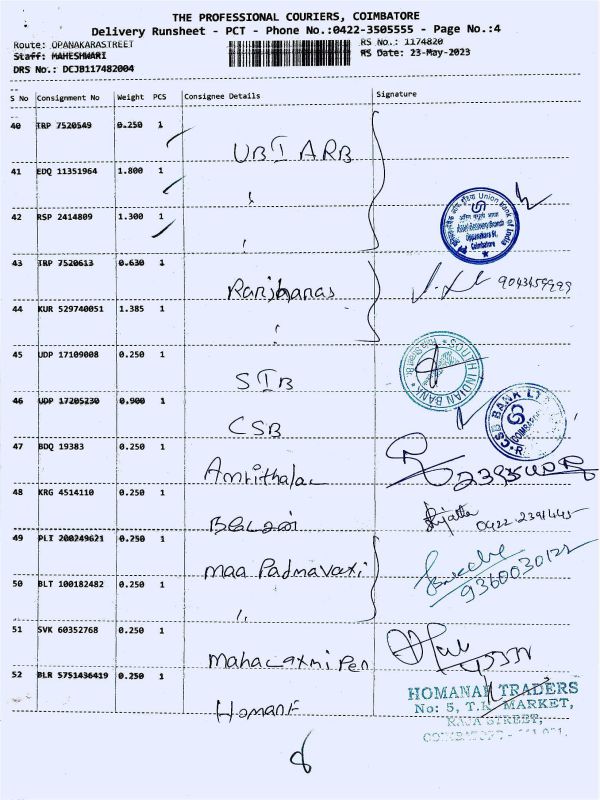 THE PROFESSIONAL COURIERS, COIMBATORE
Delivery Runsheet - PCT - Phone No.:0422-3505555 - Page No.:4
Route: OPANAKARASTREET
RS No.: 1174820
Staff: MAHESHWARI
RS Date: 23-May-2023
DRS No.: DCJB117482004
S No Consignment No Weight PCS Consignee Details Signature
40 TRP 7520549 0.250 1
UBI ARB
41 EDQ 11351964 1.800 1
42 RSP 2414809 1.300 1
Union Bank of India
Asset Recovery Branch
Oppanakara St.
Coimbatore
43 TRP 7520613 0.630 1
9043459999
44 KUR 529740051 1.385 1
45 UDP 17109008 0.250 1
SIB
SOUTH INDIAN BANK
46 UDP 17205230 0.900 1
CSB
CSB BANK LT
COIMBATORE
47 BDQ 19383 0.250 1
48 KRG 4514110 0.250 1
0422 2391445
49 PLI 200249621 0.250 1
Maa Padmavati
9360030122
50 BLT 100182482 0.250 1
51 SVK 60352768 0.250 1
Mahalaxmi Pen
52 BLR 5751436419 0.250 1
HOMANAK TRADERS
No: 5, T.K. MARKET,
RAJA STREET,